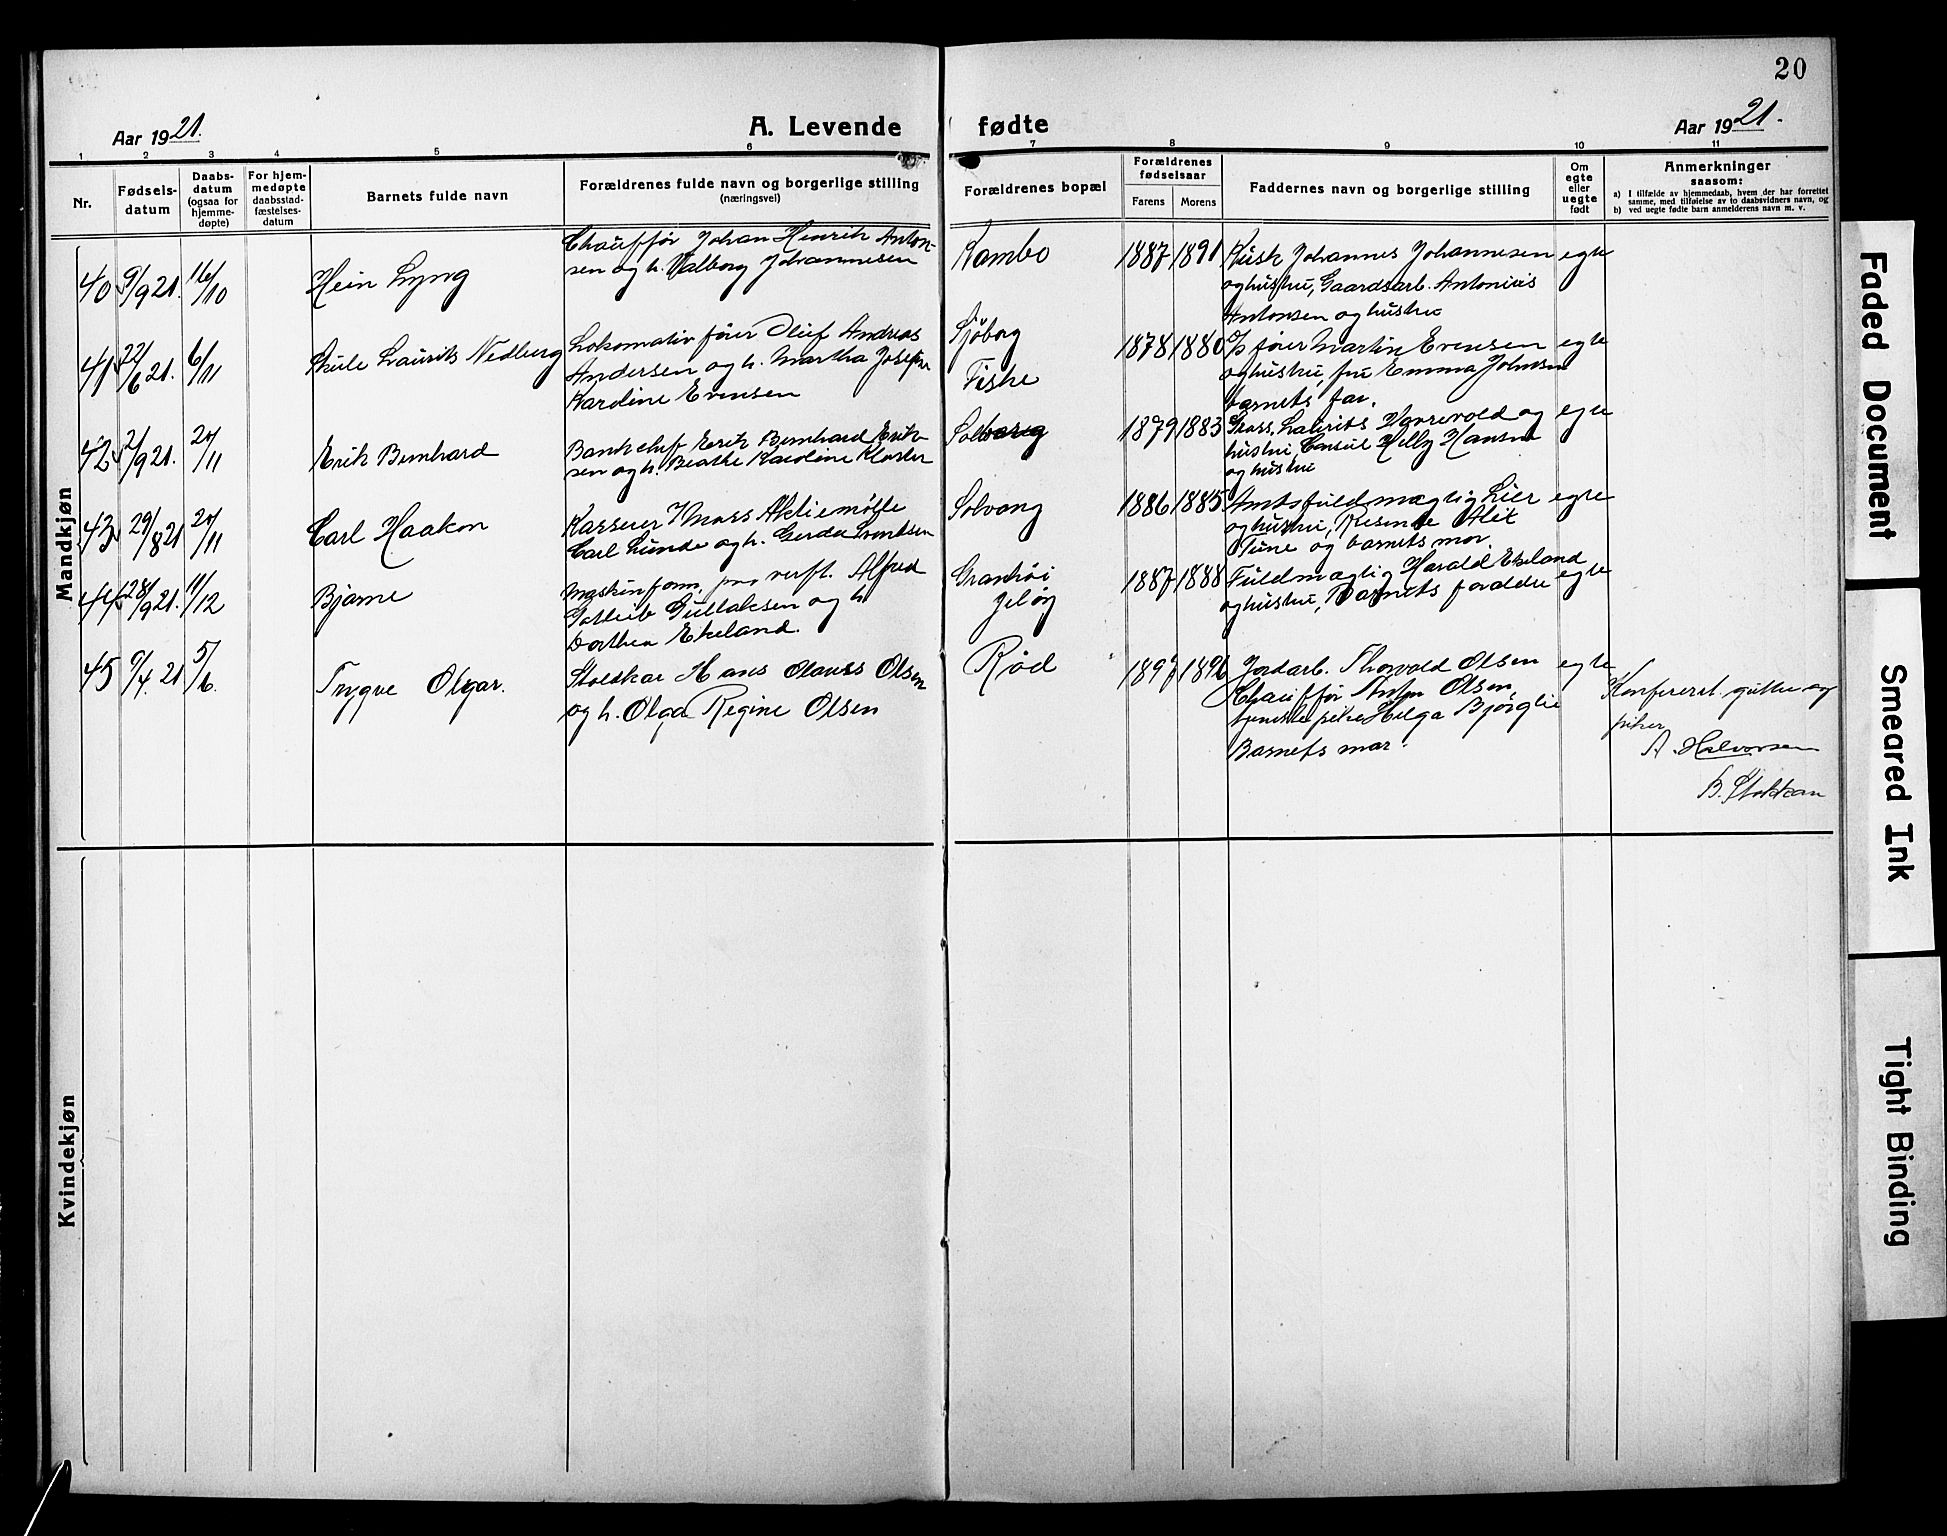 20
Aar 1921.
A. Levende
fødte
Aar 1921.
1 2 3 4 5 6
7 8 9 10 11
Nr.
Fødsels-
datum
Daabs-
datum
(ogsaa for
hjemme-
døpte)
For hjem-
medøpte
daabsstad-
fæstelses-
datum
Barnets fulde navn
Forældrenes fulde navn og borgerlige stilling
(næringsvei)
Forældrenes bopæl
Forældrenes
fødselsaar
Farens Morens
Faddernes navn og borgerlige stilling
Om
egte
eller
uegte
født
Anmerkninger
saasom:
a) I tilfælde av hjemmedaab, hvem der har forrettet
samme, med tilføielse av to daabsvidners navn, og
b) ved uegte fødte barn anmelderens navn m. v.
Mandkjøn
40 9/9 21. 16/10 Hein Lyng
Chauffør Johan Henrik Anton-
sen og h. Valborg Johannesen
Kambo
1887 1891
Kusk Johannes Johannesen
og hustru, Gaardsarb. Antonius
Antonsen og hustru
egte
41 22/6 21. 6/11 Skule Laurits Nedberg
Lokomotivfører Oluf Andreas
Andersen og h. Martha Josefine
Karoline Evensen
Sjøborg
Fiske
1878 1880
fører Martin Evensen
og hustru, fru Emma Johnsen
barnets far.
egte
42 2/9 21. 20/11 Erik Bernhard
Bankchef Erik Bernhard Erik-
sen og h. Beathe Karoline Kloster
Solvang
1879 1883
Laurits og
hustru, Consul Helly Hansen
og hustru
egte
43 29/8 21 20/11 Carl Haakon
Kasserer v/ Moss Aktiemølle
Carl Lunde og h. Gerda
Solvang
1886 1885
Amtsfuldmægtig Lier
og hustru,
Tune og barnets mor.
egte
44 28/9 21. 11/12 Bjarne
Maskinform. paa verft. Alfred
Gotlieb Gullaksen og h.
Dorthea Ekeland.
Granhøi
Jeløy
1887 1888
Fuldmægtig Harald Ekeland
og hustru, Barnets forældre
egte
45 9/4. 21 5/6. Trygve Olgar.
Staldkar Hans Olauss Olsen
og h. Olga Regine Olsen
Rød
1897 1896
Jordarb. Thorvald Olsen
Chauffør Anton Olsen,
tjenestepike Helga
Barnets mor.
egte
Konfereret gutter og
piker
A. Halvorsen
B.
Kvindekjøn
Faded Document
Smeared Ink
Tight Binding